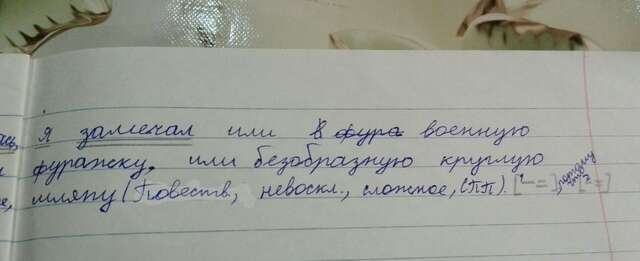 я замечал или в фура военную
фуражку, или безобразную круглую
шляпу (Повеств., невоскл., сложное, (ПП). [- =], потому
что [- =]